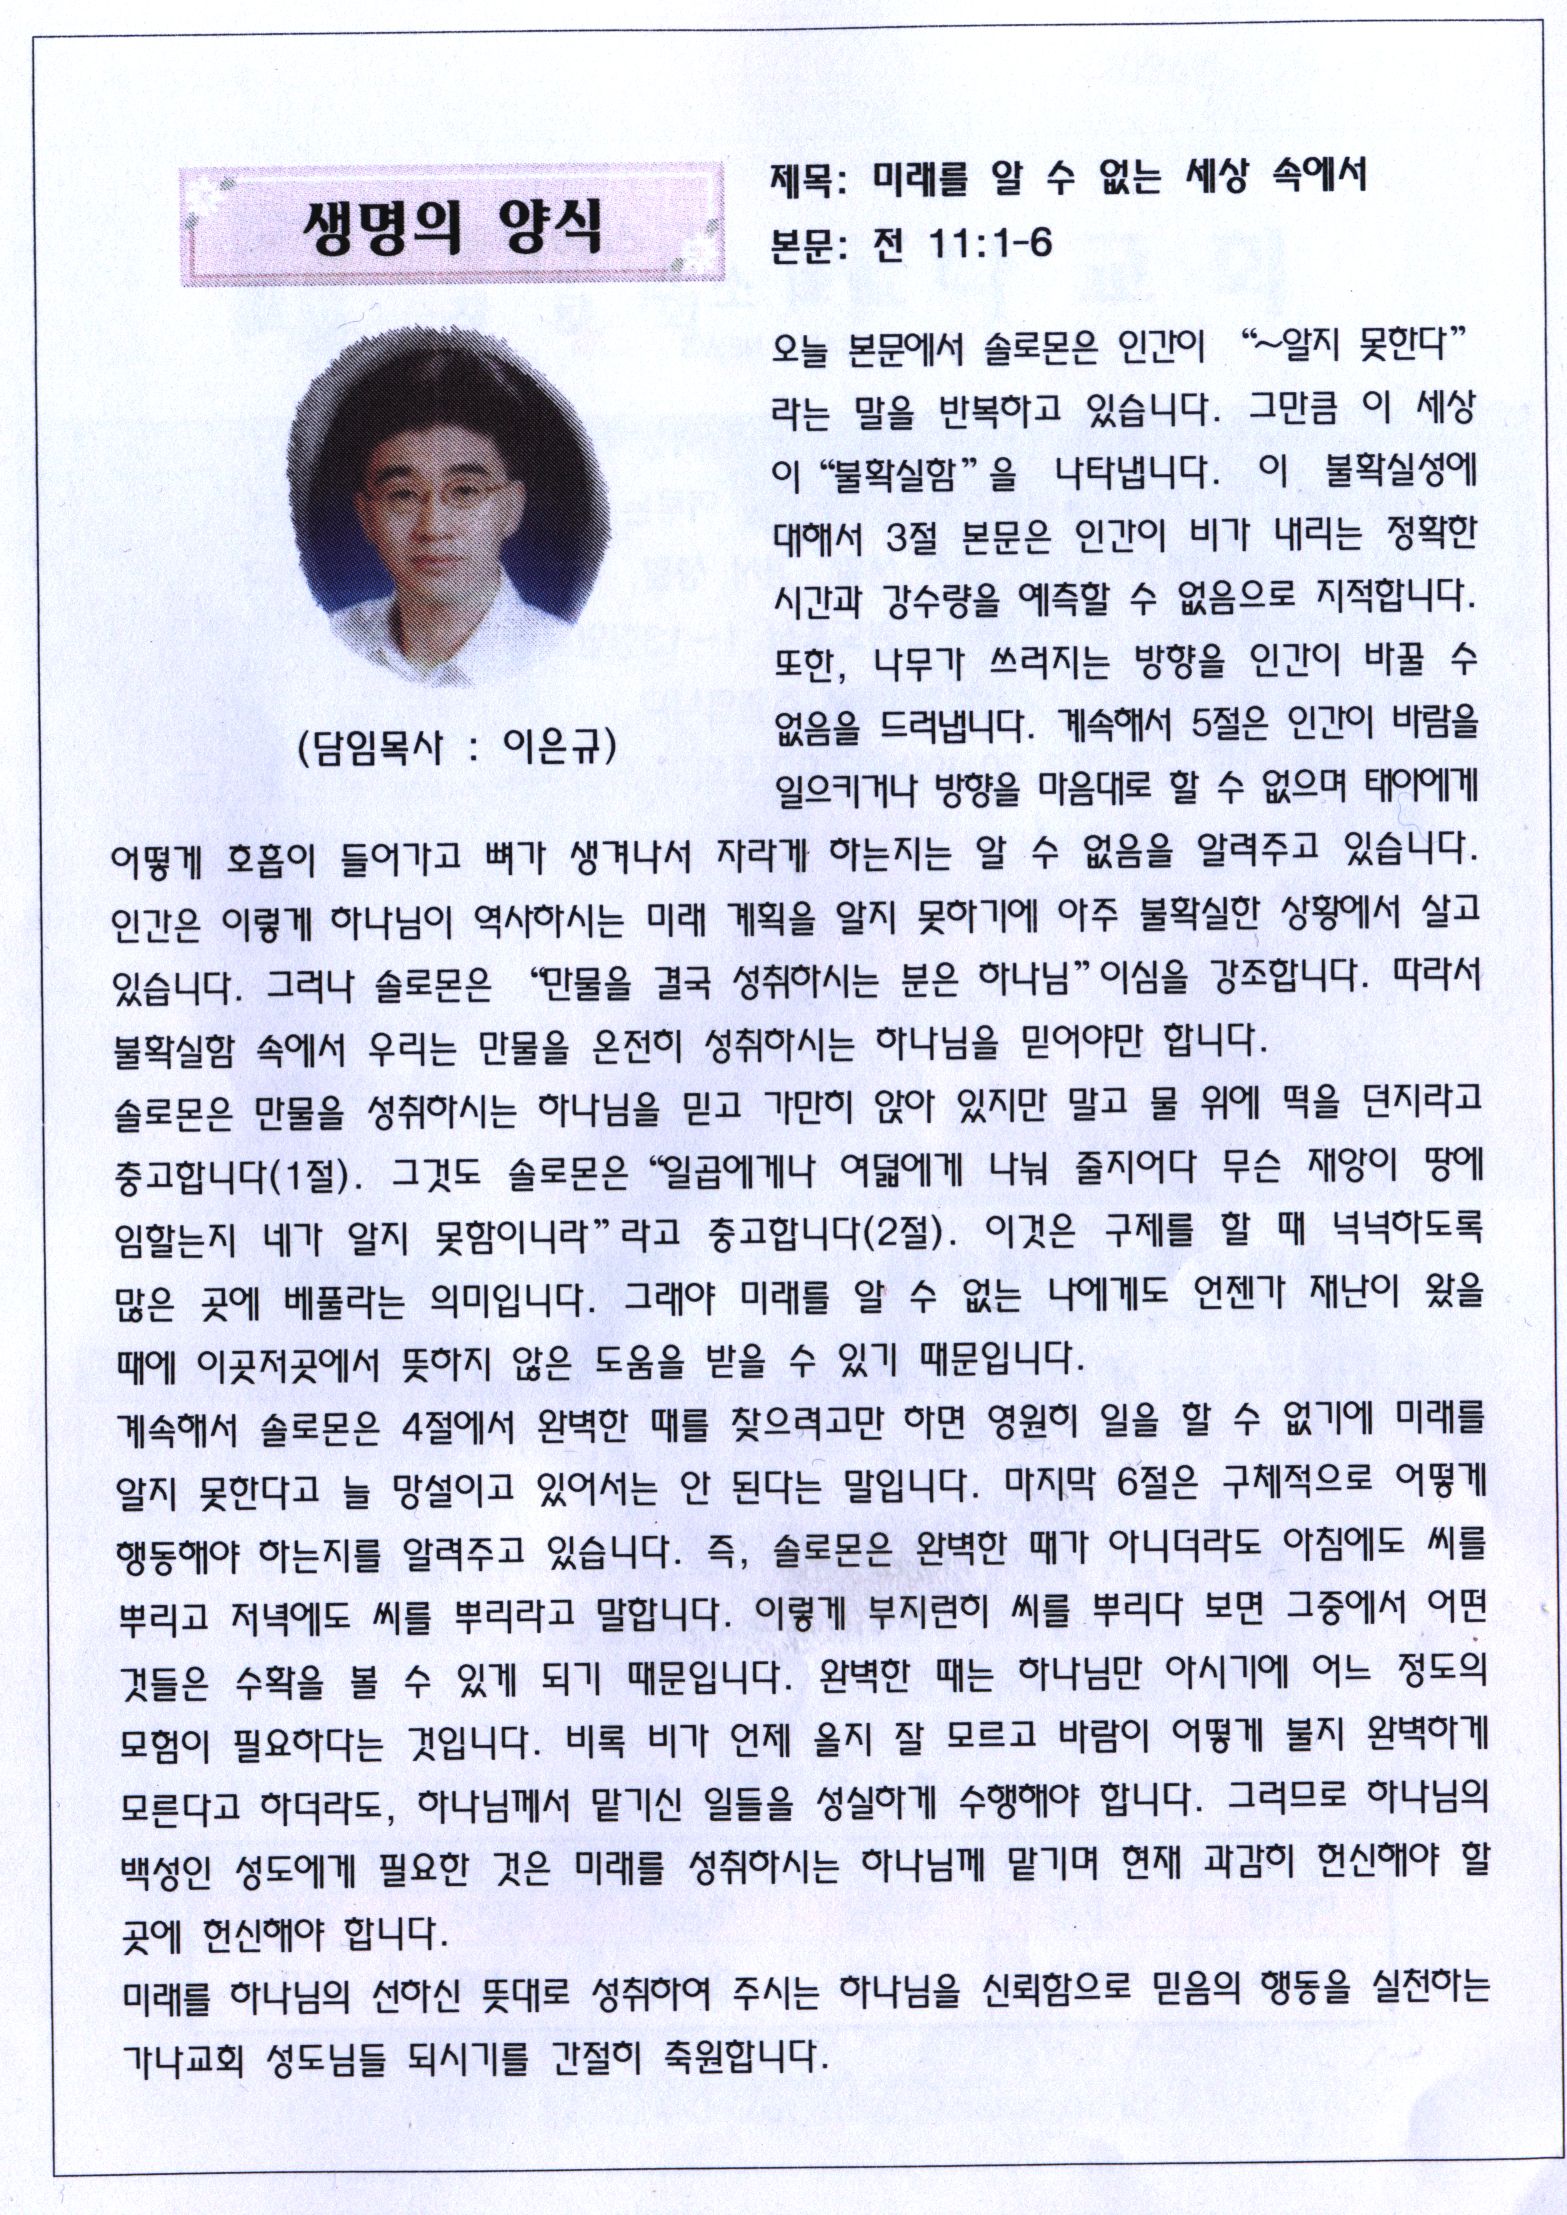 생명의 양식
제목: 미래를 알 수 없는 세상 속에서
본문: 전 11:1-6
(담임목사 : 이은규)
오늘 본문에서 솔로몬은 인간이 “~알지 못한다”
라는 말을 반복하고 있습니다. 그만큼 이 세상
이 “불확실함”을 나타냅니다. 이 불확실성에
대해서 3절 본문은 인간이 비가 내리는 정확한
시간과 강수량을 예측할 수 없음으로 지적합니다.
또한, 나무가 쓰러지는 방향을 인간이 바꿀 수
없음을 드러냅니다. 계속해서 5절은 인간이 바람을
일으키거나 방향을 마음대로 할 수 없으며 태아에게
어떻게 호흡이 들어가고 뼈가 생겨나서 자라게 하는지는 알 수 없음을 알려주고 있습니다.
인간은 이렇게 하나님이 역사하시는 미래 계획을 알지 못하기에 아주 불확실한 상황에서 살고
있습니다. 그러나 솔로몬은 “만물을 결국 성취하시는 분은 하나님”이심을 강조합니다. 따라서
불확실함 속에서 우리는 만물을 온전히 성취하시는 하나님을 믿어야만 합니다.
솔로몬은 만물을 성취하시는 하나님을 믿고 가만히 앉아 있지만 말고 물 위에 떡을 던지라고
충고합니다(1절). 그것도 솔로몬은 “일곱에게나 여덟에게 나눠 줄지어다 무슨 재앙이 땅에
임할는지 네가 알지 못함이니라”라고 충고합니다(2절). 이것은 구제를 할 때 넉넉하도록
많은 곳에 베풀라는 의미입니다. 그래야 미래를 알 수 없는 나에게도 언젠가 재난이 왔을
때에 이곳저곳에서 뜻하지 않은 도움을 받을 수 있기 때문입니다.
계속해서 솔로몬은 4절에서 완벽한 때를 찾으려고만 하면 영원히 일을 할 수 없기에 미래를
알지 못한다고 늘 망설이고 있어서는 안 된다는 말입니다. 마지막 6절은 구체적으로 어떻게
행동해야 하는지를 알려주고 있습니다. 즉, 솔로몬은 완벽한 때가 아니더라도 아침에도 씨를
뿌리고 저녁에도 씨를 뿌리라고 말합니다. 이렇게 부지런히 씨를 뿌리다 보면 그중에서 어떤
것들은 수확을 볼 수 있게 되기 때문입니다. 완벽한 때는 하나님만 아시기에 어느 정도의
모험이 필요하다는 것입니다. 비록 비가 언제 올지 잘 모르고 바람이 어떻게 불지 완벽하게
모른다고 하더라도, 하나님께서 맡기신 일들을 성실하게 수행해야 합니다. 그러므로 하나님의
백성인 성도에게 필요한 것은 미래를 성취하시는 하나님께 맡기며 현재 과감히 헌신해야 할
곳에 헌신해야 합니다.
미래를 하나님의 선하신 뜻대로 성취하여 주시는 하나님을 신뢰함으로 믿음의 행동을 실천하는
가나교회 성도님들 되시기를 간절히 축원합니다.